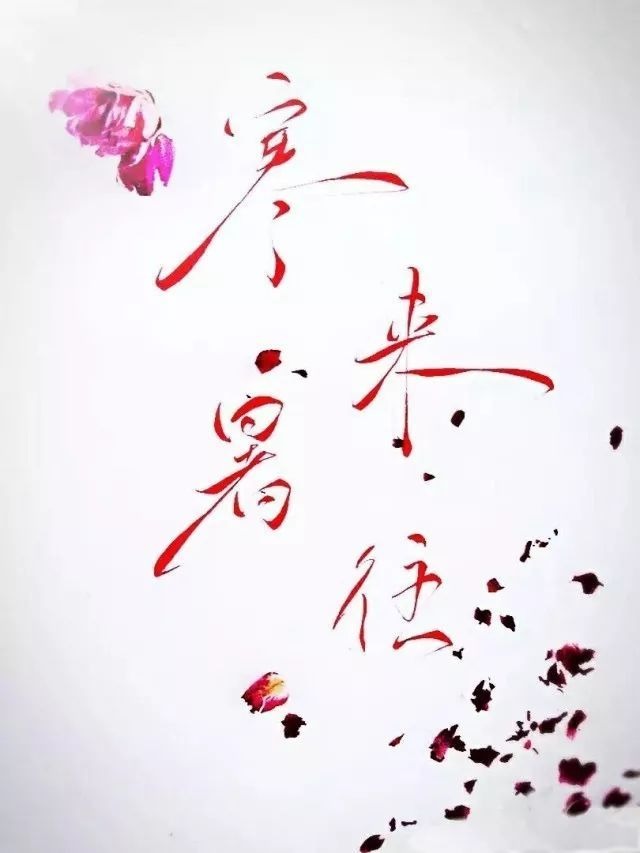 寒
来
暑
往